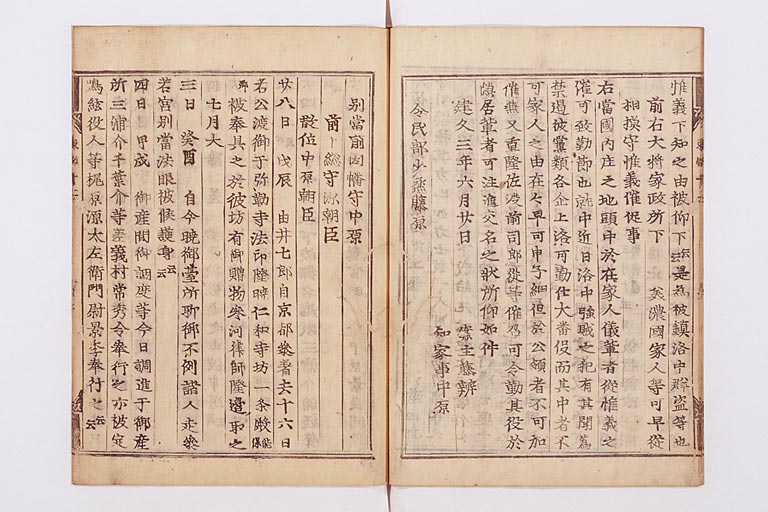 惟義下知之由被仰下云云是為被鎮洛中群盗等也
前右大將家政所下　美濃國家人等可早從
相摸守惟義催促事
右當國内庄之地頭中於在家人儀輩者從惟義之
催可致勤節也就中近日洛中強賊之犯有其聞為
禁遏彼黨類各企上洛可勤仕大番役而其中者不
可家人之由在者早可申子細但於公領者不可加
催兼又重隆佐渡前司郎從等催為可令勤其役於
隠居輩者可注進交名之状所仰如件
建久三年六月廿日　案主藤井
令民部少丞藤原　知家事中原
別當前因幡守中原
前下總守源朝臣
散位中原朝臣
廿八日　戊辰　由井七郎自京都參著去十六日
若公渡御于弥勒寺法印隆曉仁和寺坊一条殿能保
被奉具之於彼坊有御贈物參河律師隆遍取之
七月大
三日　癸酉　自今曉御臺所聊御不例諸人走參
若宮別當法眼被候護身云云
四日　甲戌　御産間御調度等今日調進于御産
所三浦介千葉介等義村常秀令奉行之亦被定
鳴絃役人等梶原源太左衛門尉景季奉行之云云